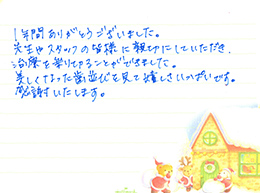 1年間ありがとうございました。
先生やスタッフの皆様に親切にしていただき、
治療を乗りきることができました。
美しくなった歯並びを見て嬉しさいっぱいです。
感謝いたします。